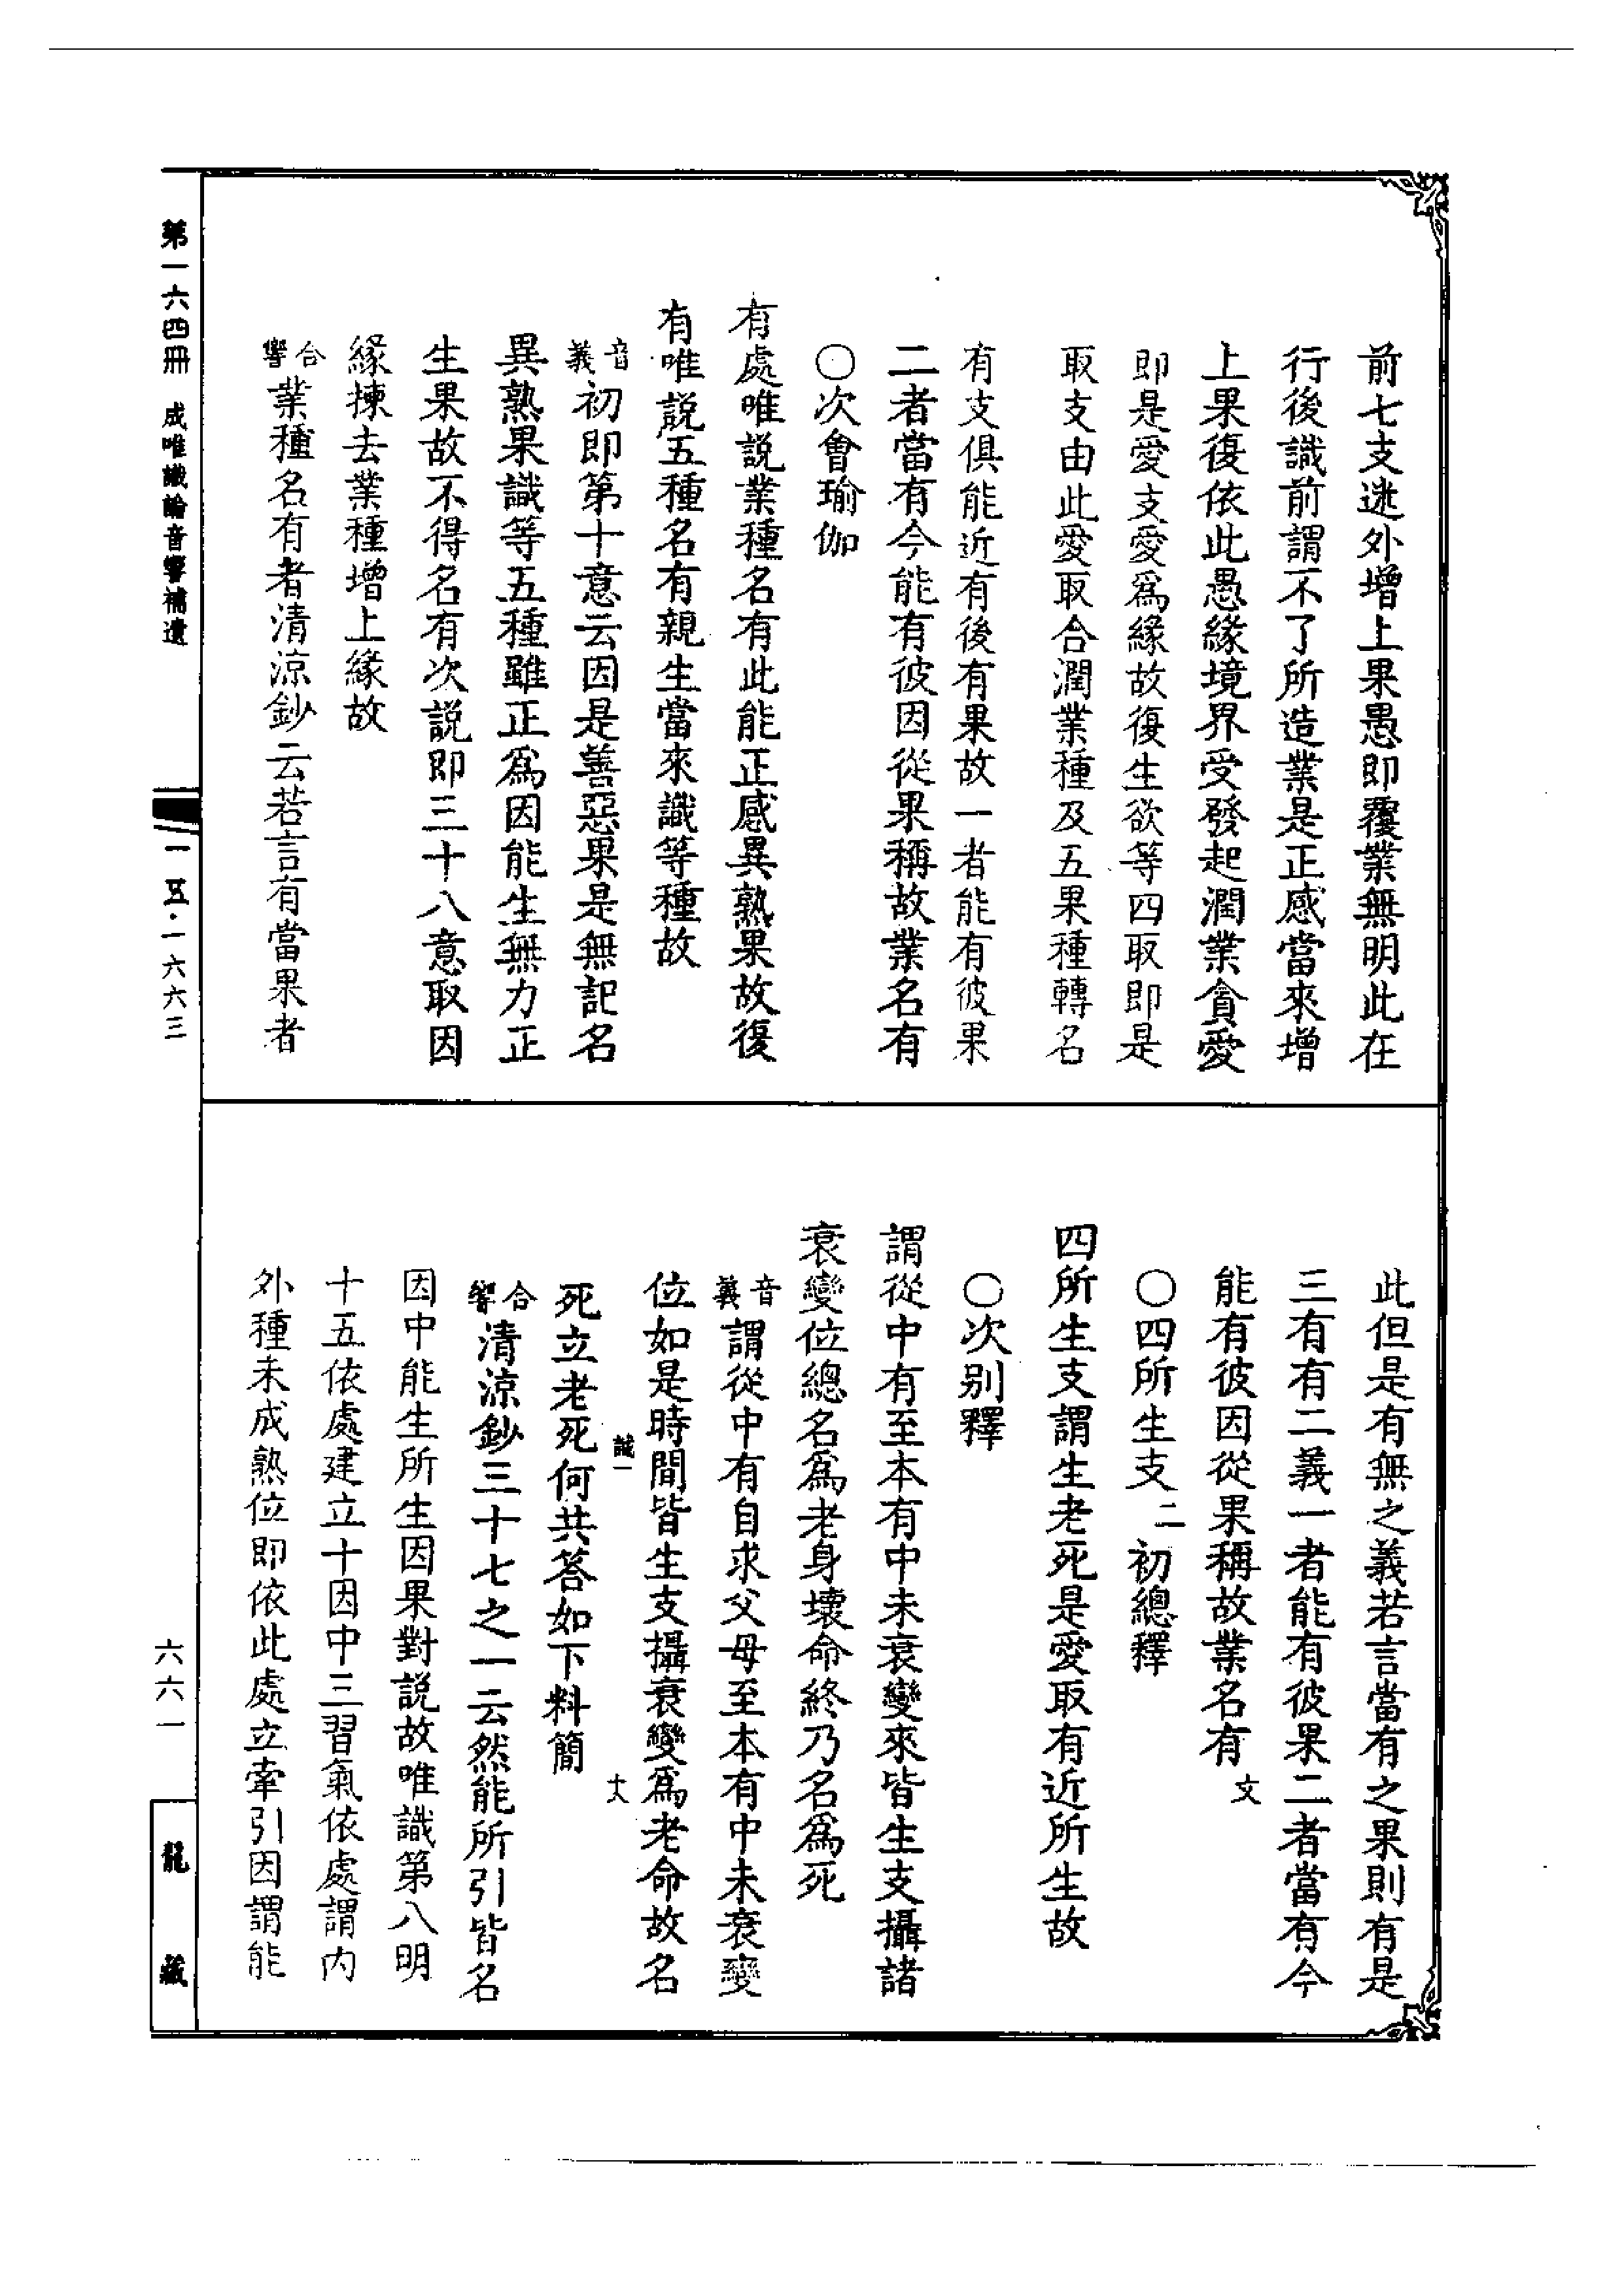 前七支迷外增上果愚即覆業無明此在
行後識前謂不了所造業是正感當來增
上果復依此愚緣境界受發起潤業貪愛
即是愛支愛爲緣故復生欲等四取即是
取支由此愛取合潤業種及五果種轉名
有支俱能近有後有果故一者能有彼果
二者當有今能有彼因從果稱故業名有
〇次會瑜伽
有處唯説業種名有此能正感異熟果故復
有唯説五種名有親生當來識等種故
音義初即第十意云因是善惡果是無記名
異熟果識等五種雖正爲因能生無力正
生果故不得名有次説即三十八意取因
緣揀去業種增上緣故
合響業種名有者清涼鈔云若言有當果者
此但是有無之義若言當有之果則有是
三有有二義一者能有彼果二者當有今
能有彼因從果稱故業名有 文
〇四所生支二初總釋
四所生支謂生老死是愛取有近所生故
〇次別釋
謂從中有至本有中未衰變來皆生支攝諸
衰變位總名爲老身壞命終乃名爲死
音義謂從中有自求父母至本有中未衰變
位如是時間皆生支攝衰變爲老命故名
誠一
大
死立老死何共答如下料簡
合響清涼鈔三十七之一云然能所引皆名
因中能生所生因果對説故唯識第八明
十五依處建立十因中三習氣依處謂内
外種未成熟位即依此處立牽引因謂能
第一六四冊 成唯識論音響補遺
一五·一六六三
六六一
龍藏